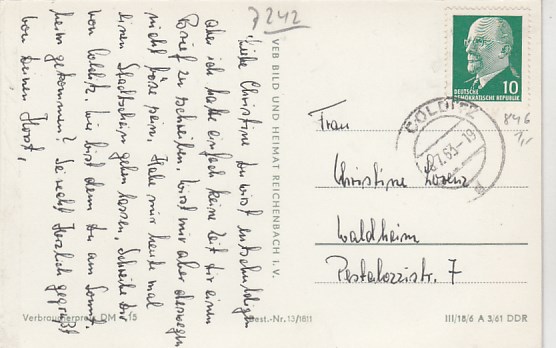 7242
Liebe Christine du wirst entschuldigen
aber ich hatte einfach keine Zeit dir einen
Brief zu schreiben, wirst mir aber deswegen
nicht böse sein. Habe mir heute mal
einen Stadtschein geben lassen, Schreibe Dir
von Colditz. Wie bist denn Du am Sonnt.
heim gekommen? Sei recht herzlich gegrüßt
von Deinen Horst,
VEB BILD UND HEIMAT REICHENBACH I. V.
Verbraucherpreis DM -,15
Best.-Nr. 13/1811
DEUTSCHE
DEMOKRATISCHE REPUBLIK
10
COLDITZ
63-19
846
Frau
Christine Lorenz
Waldheim
Pestalozzistr. 7
III/18/6 A 3/61 DDR